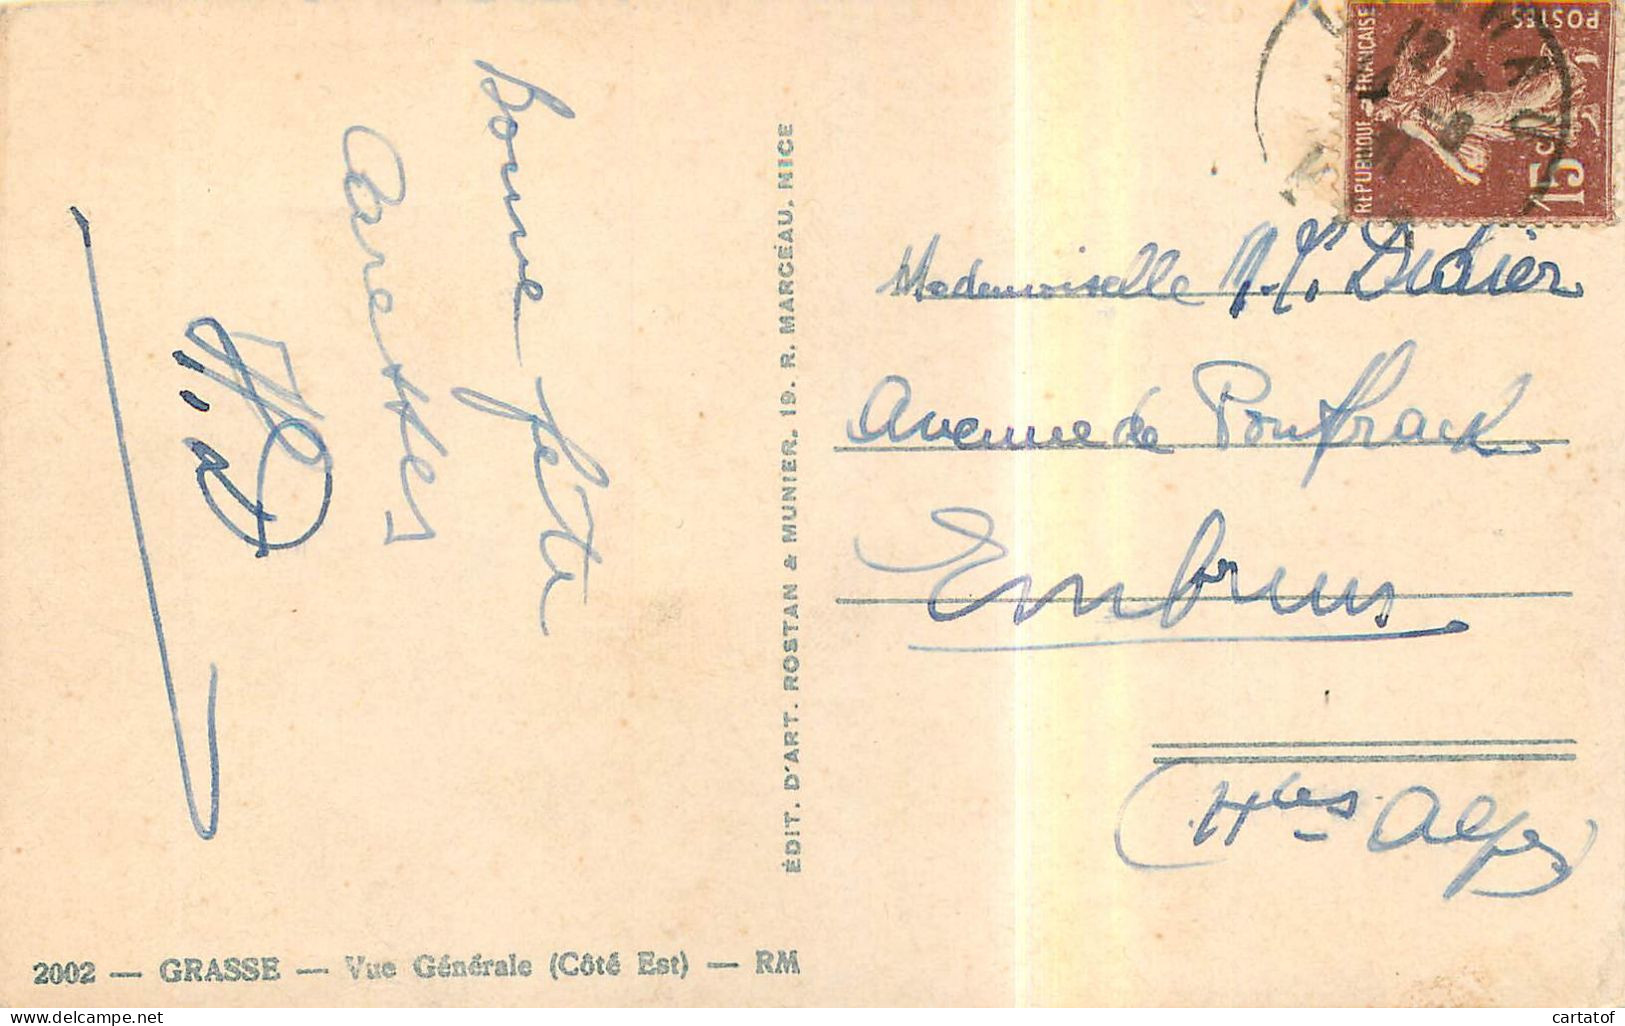 bonne fête
Caresses
Mademoiselle M. Didier
Avenue de Pontfrache
Embrun
(Htes Alpes)
ÉDIT. D'ART. ROSTAN & MUNIER, 19, R. MARCEAU, NICE
2002 — GRASSE — Vue Générale (Côté Est) — RM
REPUBLIQUE FRANÇAISE
POSTES
15 C
cartatof